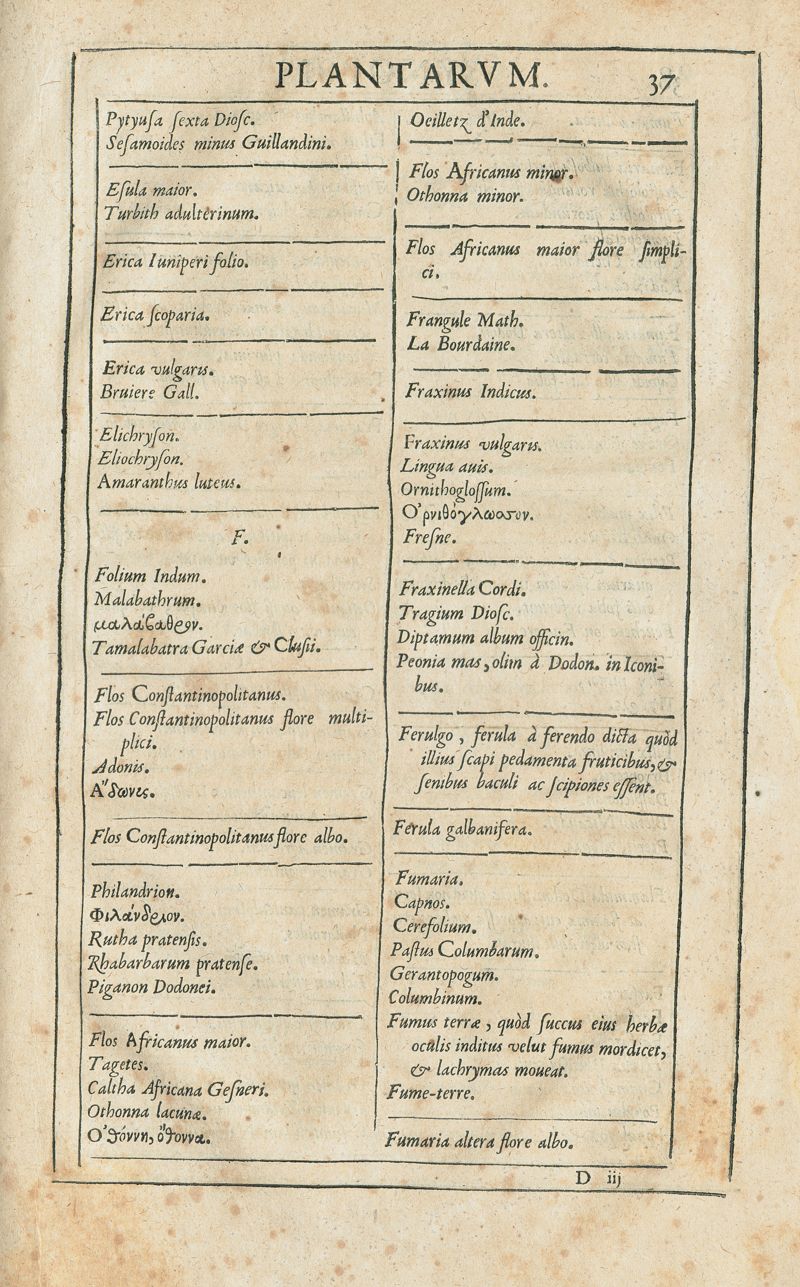 PLANTARVM.
37
Pytyuſa ſexta Dioſc.
Seſamoides minus Guillandini.
Eſula maior.
Turbith adulterinum.
Erica Iuniperi folio.
Erica ſcoparia.
Erica vulgaris.
Bruiere Gall.
Elichryſon.
Eliochryſon.
Amaranthus luteus.
F.
Folium Indum.
Malabathrum.
μαλάβαθρον.
Tamalabatra Garciæ & Cluſii.
Flos Conſtantinopolitanus.
Flos Conſtantinopolitanus flore multi-
plici.
Adonis.
Α῎δωνις.
Flos Conſtantinopolitanus flore albo.
Philandrion.
Φιλάνδριον.
Rutha pratenſis.
Rhabarbarum pratenſe.
Piganon Dodonei.
Flos Africanus maior.
Tagetes.
Caltha Africana Geſneri.
Othonna lacunæ.
Ο᾿θόννη, ὄθοννα.
Oeilletz d'Inde.
Flos Africanus minor.
Othonna minor.
Flos Africanus maior flore ſimpli-
ci.
Frangule Math.
La Bourdaine.
Fraxinus Indicus.
Fraxinus vulgaris.
Lingua auis.
Ornithogloſſum.
Ο᾿ρνιθόγλωσσον.
Freſne.
Fraxinella Cordi.
Tragium Dioſc.
Diptamum album officin.
Peonia mas, olim à Dodon. in Iconi-
bus.
Ferulgo, ferula à ferendo dicta quòd
illius ſcapi pedamenta fruticibus, &
ſenibus baculi ac ſcipiones eſſent.
Ferula galbanifera.
Fumaria.
Capnos.
Cerefolium.
Paſtus Columbarum.
Gerantopogum.
Columbinum.
Fumus terræ, quòd ſuccus eius herbæ
oculis inditus velut fumus mordicet,
& lachrymas moueat.
Fume-terre.
Fumaria altera flore albo.
D iij